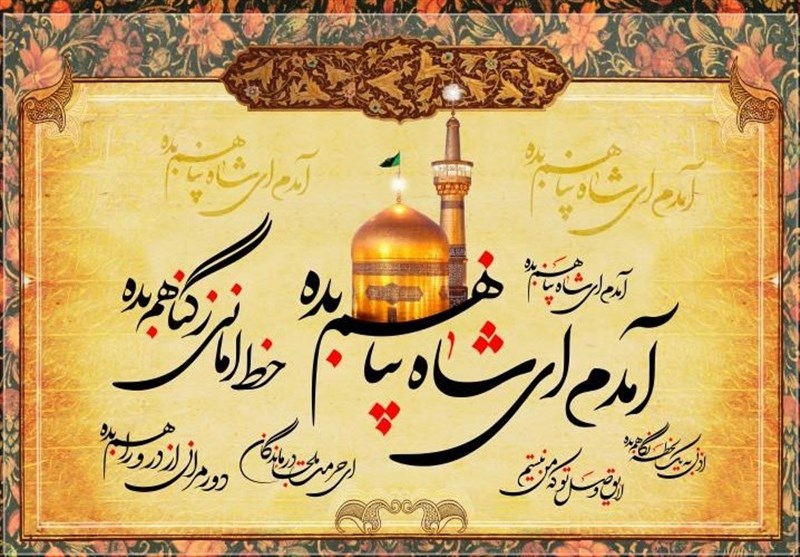 آمدم ای شاه پناهم بده
آمدم ای شاه پناهم بده
آمدم ای شاه پناهم بده
آمدم ای شاه پناهم بده
خط امانی ز گناهم بده
ای حرمت ملجأ درماندگان
دور مران از در و راهم بده
لایق وصل تو که من نیستم
اذن به یک لحظه نگاهم بده